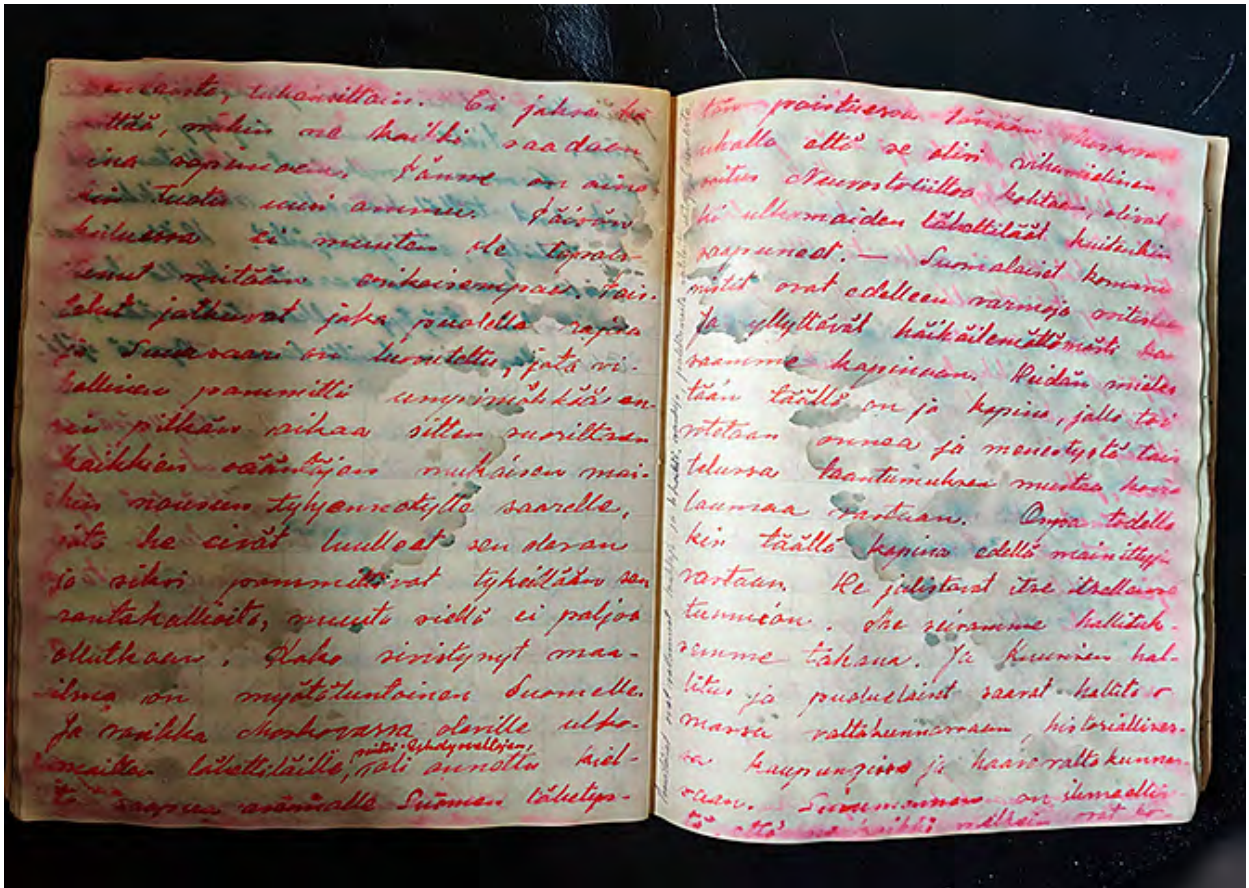 tuhansittain. Ei jaksa kä
sittää, mihin ne kaikki saadaan
aina sopimaan. Tänne on aina
kin tuotu uusi ammu. Päivän
kuluessa ei muuten ole tapah
tunut mitään erikoisempaa. Tais-
telut jatkuvat joka puolella rajaa
ja Suursaari on luovutettu, jota vi-
hollinen pommitti umpimähkää en-
sin pitkän aikaa sitten suorittaen
kaikkien sääntöjen mukaisen mai-
hin nousun tyhjennetylle saarelle,
jota he eivät luulleet sen olevan
ja siksi pommittivat tykeillään sen
rantakallioita, muuta siellä ei paljoa
ollutkaan. Koko sivistynyt maa-
ilma on myötätuntoinen Suomelle.
Ja vaikka Moskovassa oleville ulko-
paitsi Yhdysvaltojen,
maitten lähettiläille, oli annettu kiel-
to saapua asemalle Suomen lähetys-
tön poistuessa
uhalla että se olisi vihamielinen
osoitus Neuvostoliittoa kohtaan, olivat
ulkomaiden lähettiläät kuitenkin
saapuneet. — Suomalaiset kommu
nistit ovat edelleen varmoja
Ja yllyttävät häikäilemättömästi ka
saamme kapinaan. Heidän mieles
tään täällä on jo kapina, jolle toi
votetaan onnea ja menestystä tais
telussa taantumuksen mustaa
laumaa vastaan. Onpa todella
kin täällä kapina edellä mainittuja
vastaan. He julistavat itse itsellensä
tuomion. Me seisomme hallituk-
semme takana. Ja Kuusisen hal-
litus ja puoluelaiset saavat hallita o
massa valtakunnassaan, historiallises-
sa kaupungissa ja haavevaltakunnas-
saan. on ihmeellis-
tä että ne kaikki